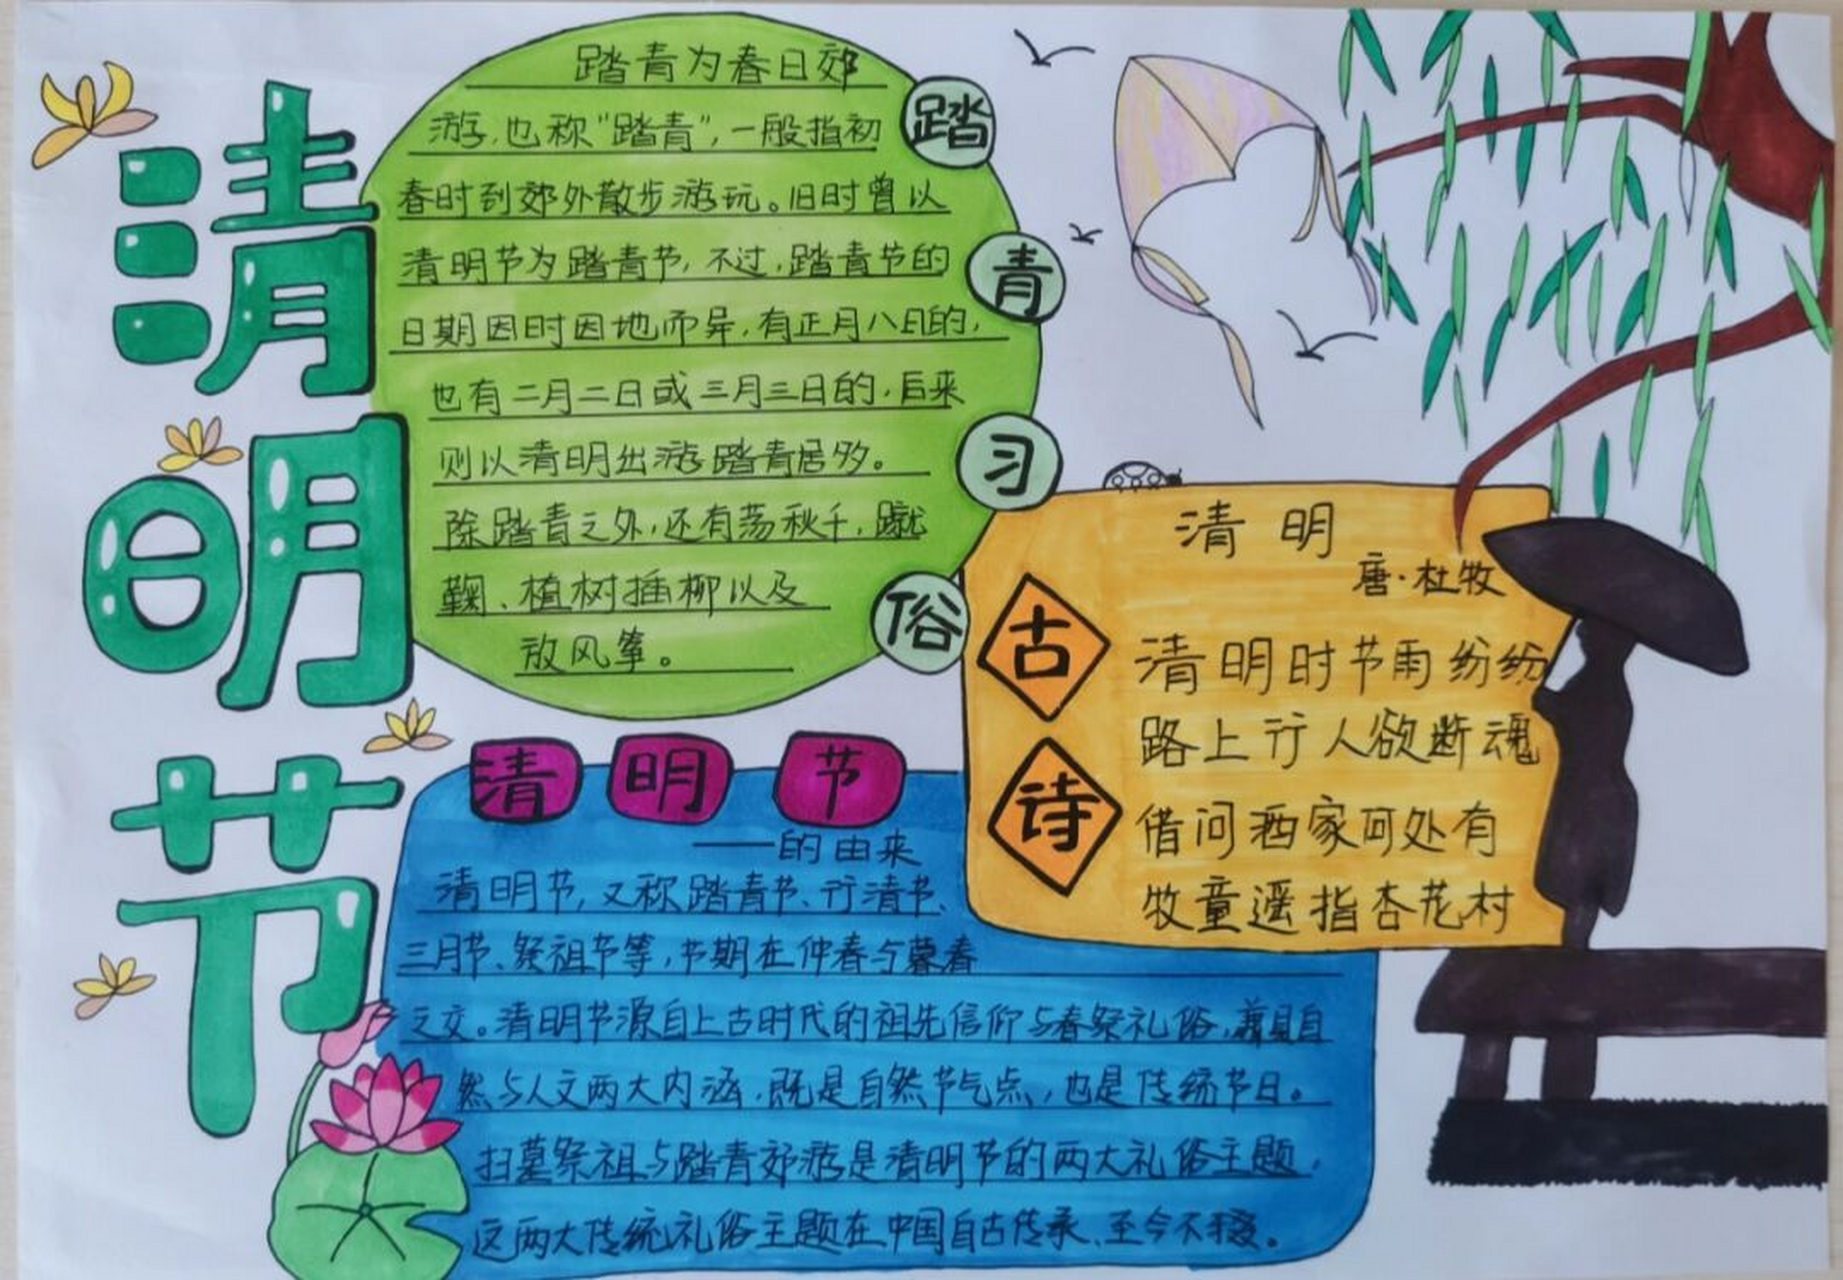 清明节
踏青习俗
踏青为春日郊
游,也称“踏青”,一般指初
春时到郊外散步游玩。旧时曾以
清明节为踏青节,不过,踏青节的
日期因时因地而异,有正月八日的,
也有二月二日或三月三日的,后来
则以清明出游踏青居多。
除踏青之外,还有荡秋千,蹴
鞠、植树插柳以及
放风筝。
古诗
清明
唐·杜牧
清明时节雨纷纷
路上行人欲断魂
借问酒家何处有
牧童遥指杏花村
清明节
——的由来
清明节,又称踏青节、行清节、
三月节、祭祖节等,节期在仲春与暮春
之交。清明节源自上古时代的祖先信仰与春祭礼俗,兼具自
然与人文两大内涵,既是自然节气点,也是传统节日。
扫墓祭祖与踏青郊游是清明节的两大礼俗主题,
这两大传统礼俗主题在中国自古传承、至今不辍。